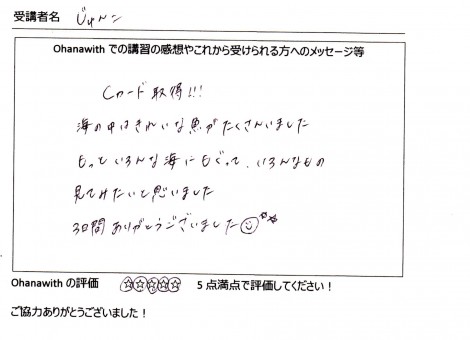 受講者名 じゅんこ
Ohanawith での講習の感想やこれから受けられる方へのメッセージ等
Cカード 取得!!!
海の中はきれいな魚がたくさんいました
もっといろんな海にもぐって、いろんなもの
見てみたいと思いました
3日間ありがとうございました
Ohanawith の評価 ☆☆☆☆☆ 5 点満点で評価してください!
ご協力ありがとうございました!